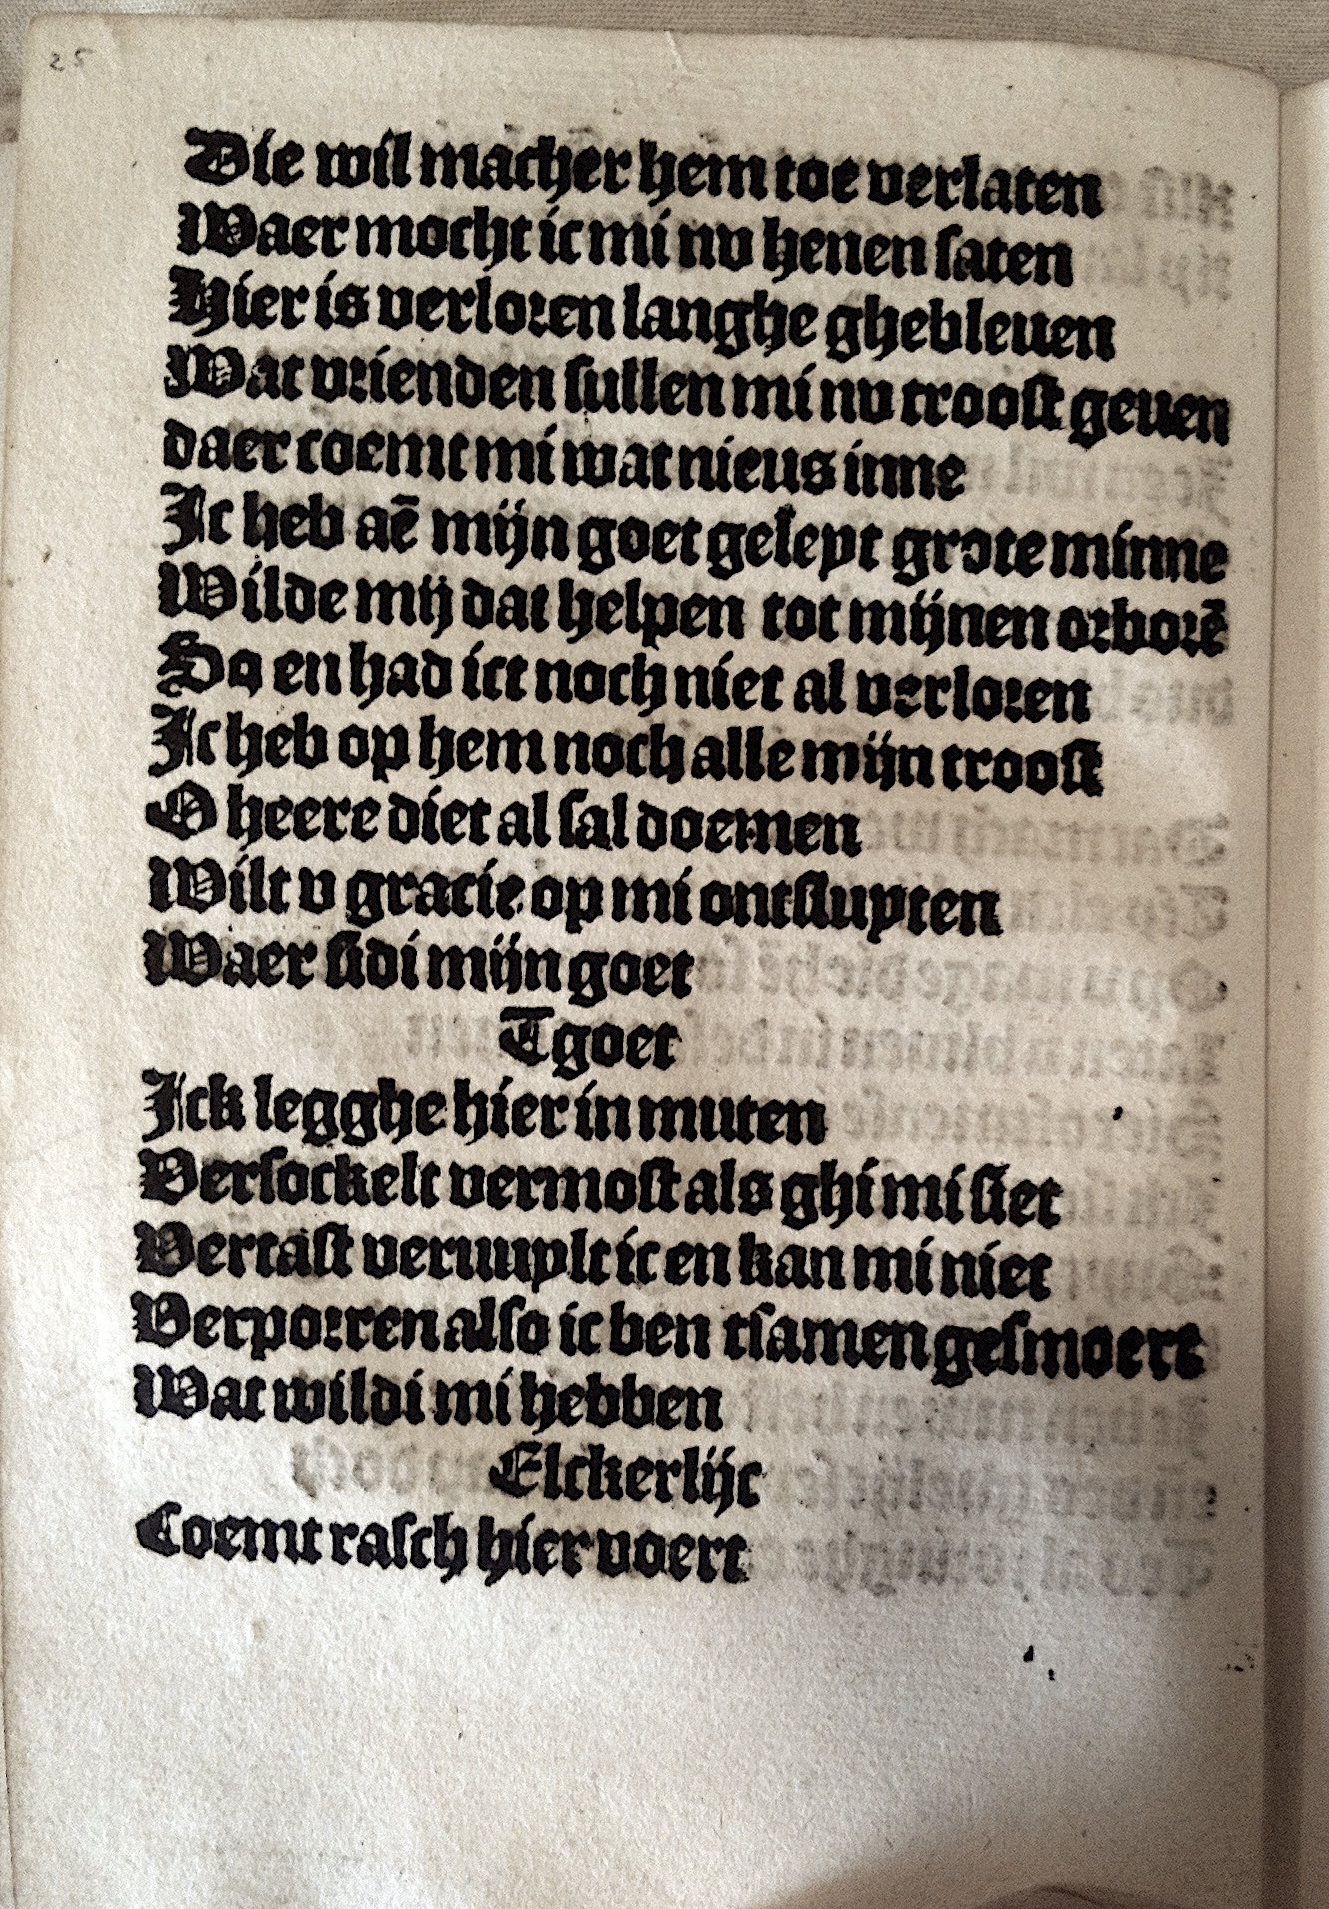 25
Die wil macher hem toe verlaten
Waer mocht ic mi nv henen saten
Hier is verloren langhe ghebleuen
Wat vrienden sullen mi nv troost geuen
daer coemt mi wat nieus inne
Ic heb aē mijn goet geleyt grote minne
Wilde mij dat helpen tot mijnen orborē
So en had ict noch niet al verloren
Ic heb op hem noch alle mijn troost
O heere diet al sal doemen
Wilt v gracie op mi ontsluyten
Waer sidi mijn goet
Tgoet
Ick legghe hier in muten
Versockelt vermost als ghi mi siet
Vertast veruuylt ic en kan mi niet
Verporren also ic ben tsamen gesmoert
Wat wildi mi hebben
Elckerlijc
Coemt rasch hier voert